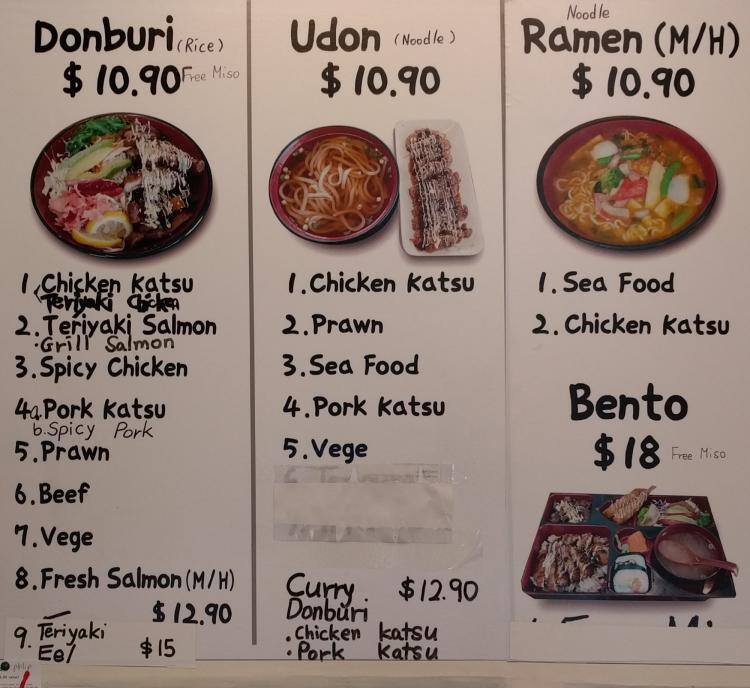 Donburi (Rice)
$ 10.90 Free Miso
1. Chicken Katsu
Teriyaki Chicken
2. Teriyaki Salmon
·Grill Salmon
3. Spicy Chicken
4a. Pork Katsu
b. Spicy Pork
5. Prawn
6. Beef
7. Vege
8. Fresh Salmon (M/H)
$ 12.90
9. Teriyaki
Eel $15
Udon (Noodle)
$ 10.90
1. Chicken Katsu
2. Prawn
3. Sea Food
4. Pork Katsu
5. Vege
Curry $12.90
Donburi
·Chicken Katsu
·Pork Katsu
Noodle
Ramen (M/H)
$ 10.90
1. Sea Food
2. Chicken Katsu
Bento
$ 18 Free Miso